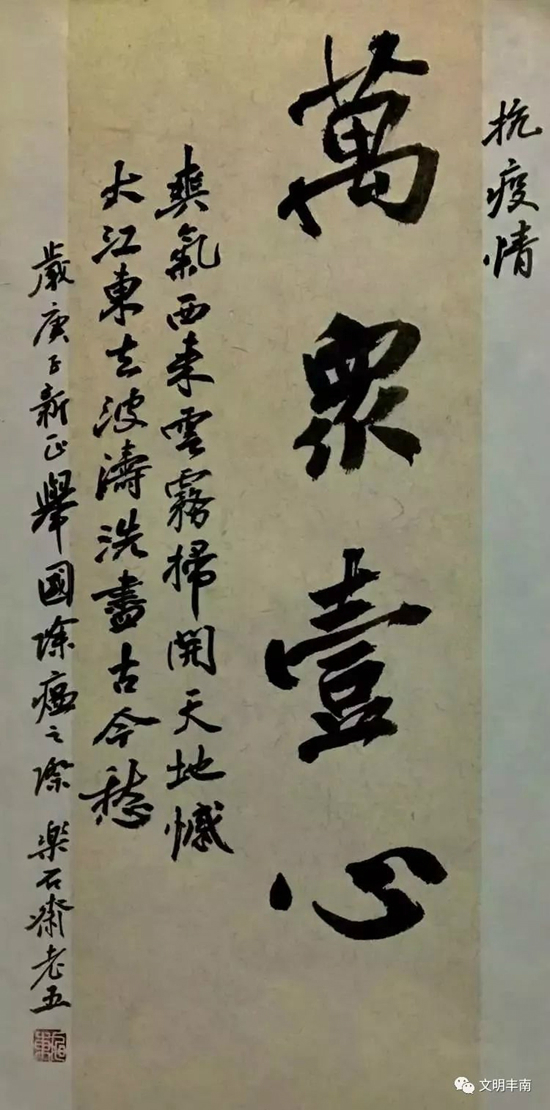 抗疫情
萬眾壹心
爽氣西來雲霧掃開天地憾
大江東去波濤洗盡古今愁
歲庚子新正舉國除瘟之際 樂石齋老五
文明丰南